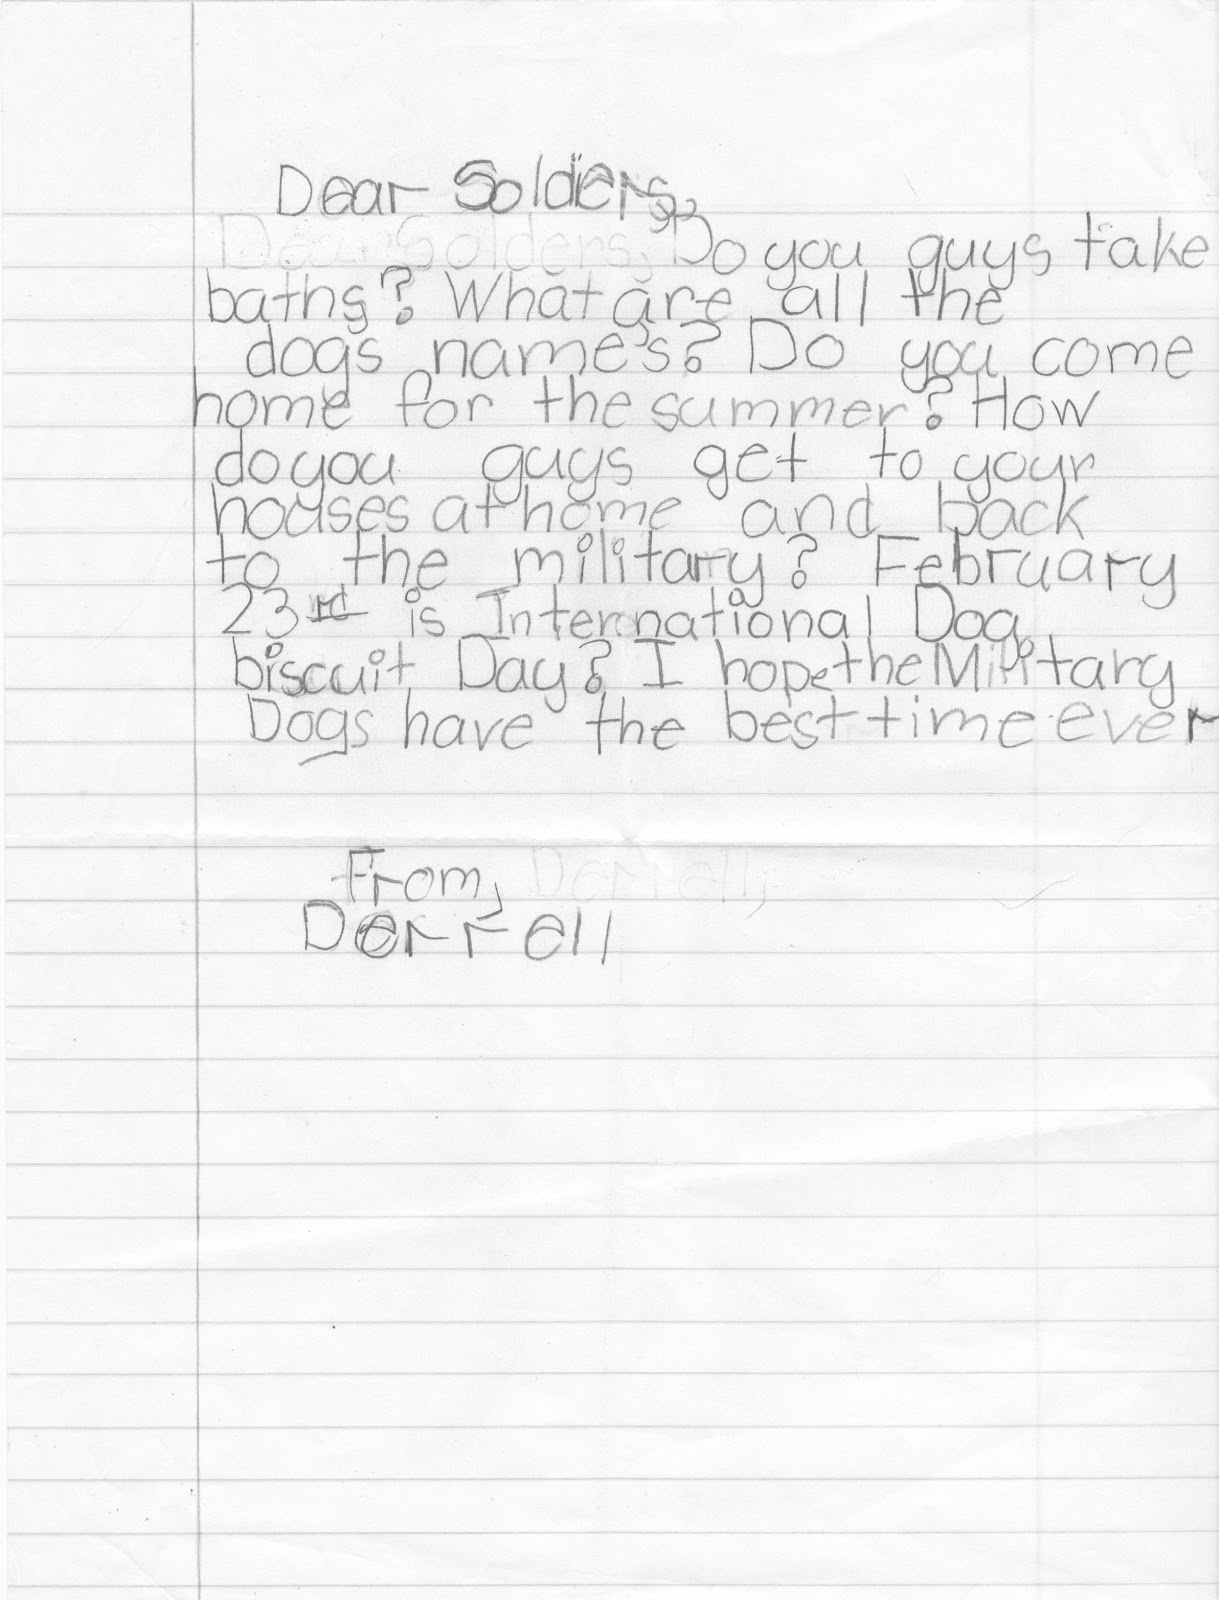 Dear Soldiers,
Dear Solders, Do you guys take
baths? What are all the
dogs name's? Do you come
home for the summer? How
do you guys get to your
houses at home and back
to the military? February
23rd is International Dog
biscuit Day? I hope the Military
Dogs have the best time ever
From, Derrell,
Derrell